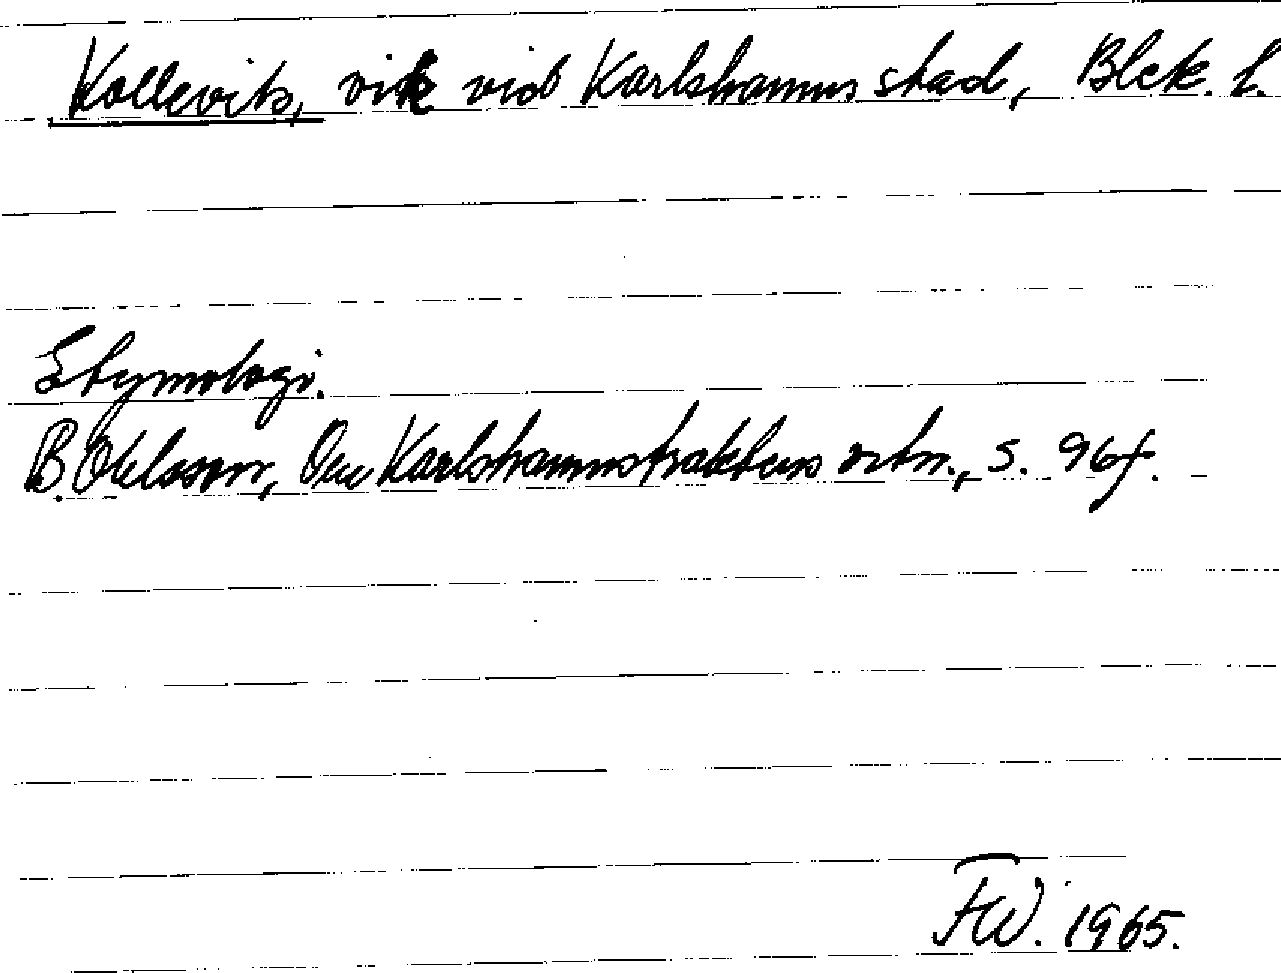 Kollevik, vik vid Karlshamns stad, Blek. l.
Etymologi.
B. Ohlsson, Om Karlshamnstraktens ortn., s. 96f.
FW. 1965.